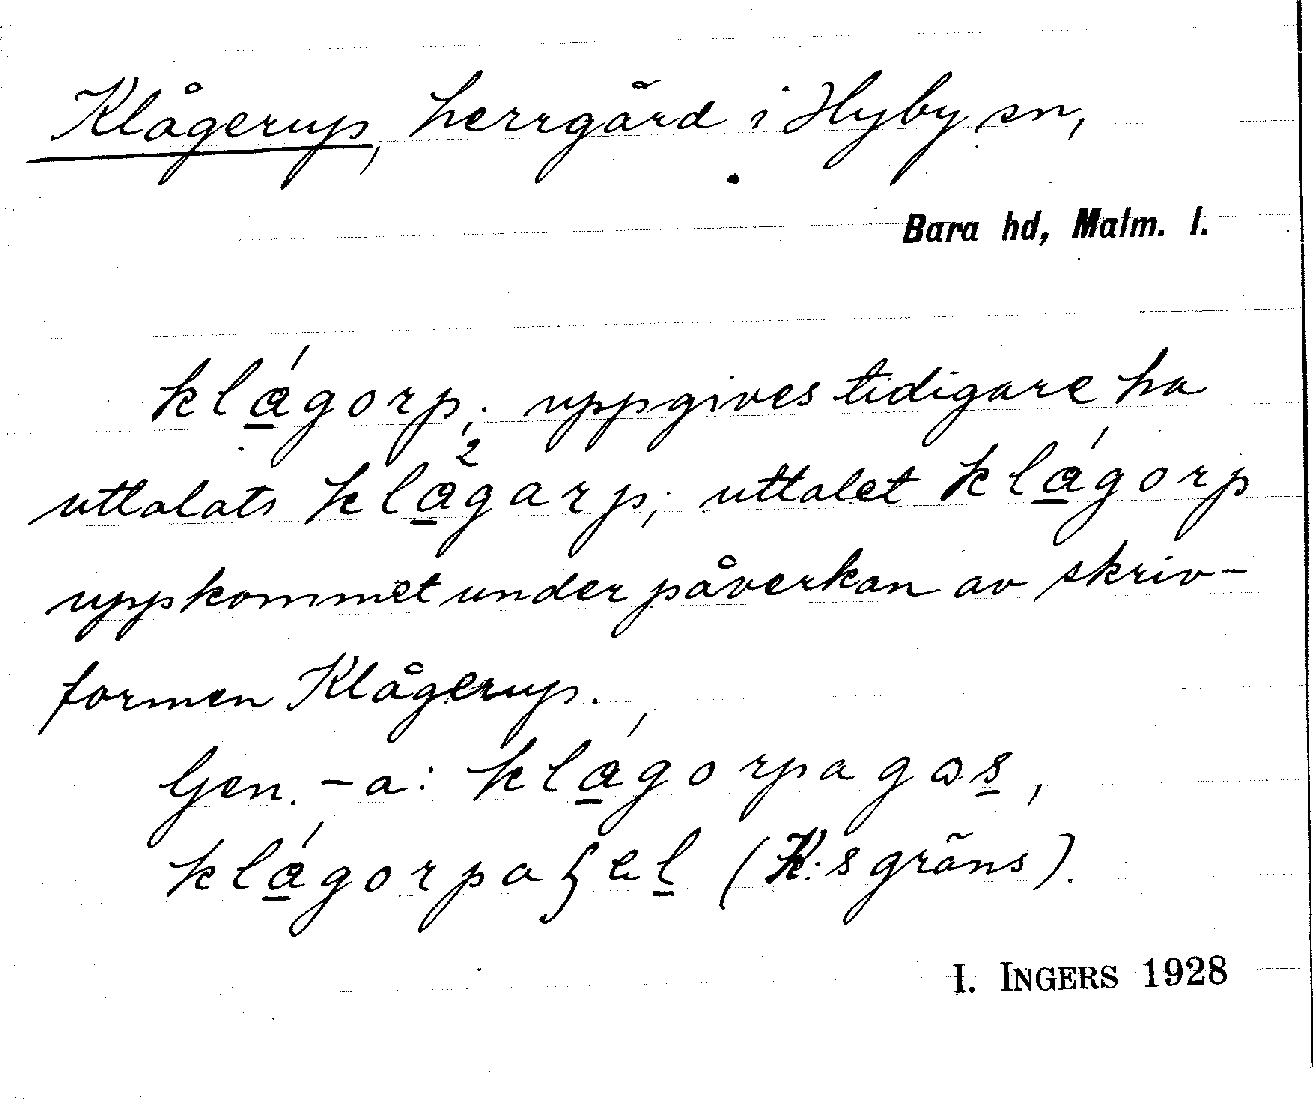 Klågerup, herrgård i Hyby sn,
Bara hd, Malm. l.
klá̱gorp; uppgives tidigare ha
uttalats kla̱²garp; uttalet klá̱gorp
uppkommet under påverkan av skriv-
formen Klågerup.
Gen. -a: klá̱gorpa gɷs̱,
klá̱gorpa ʒeḻ (K:s gräns).
I. INGERS 1928